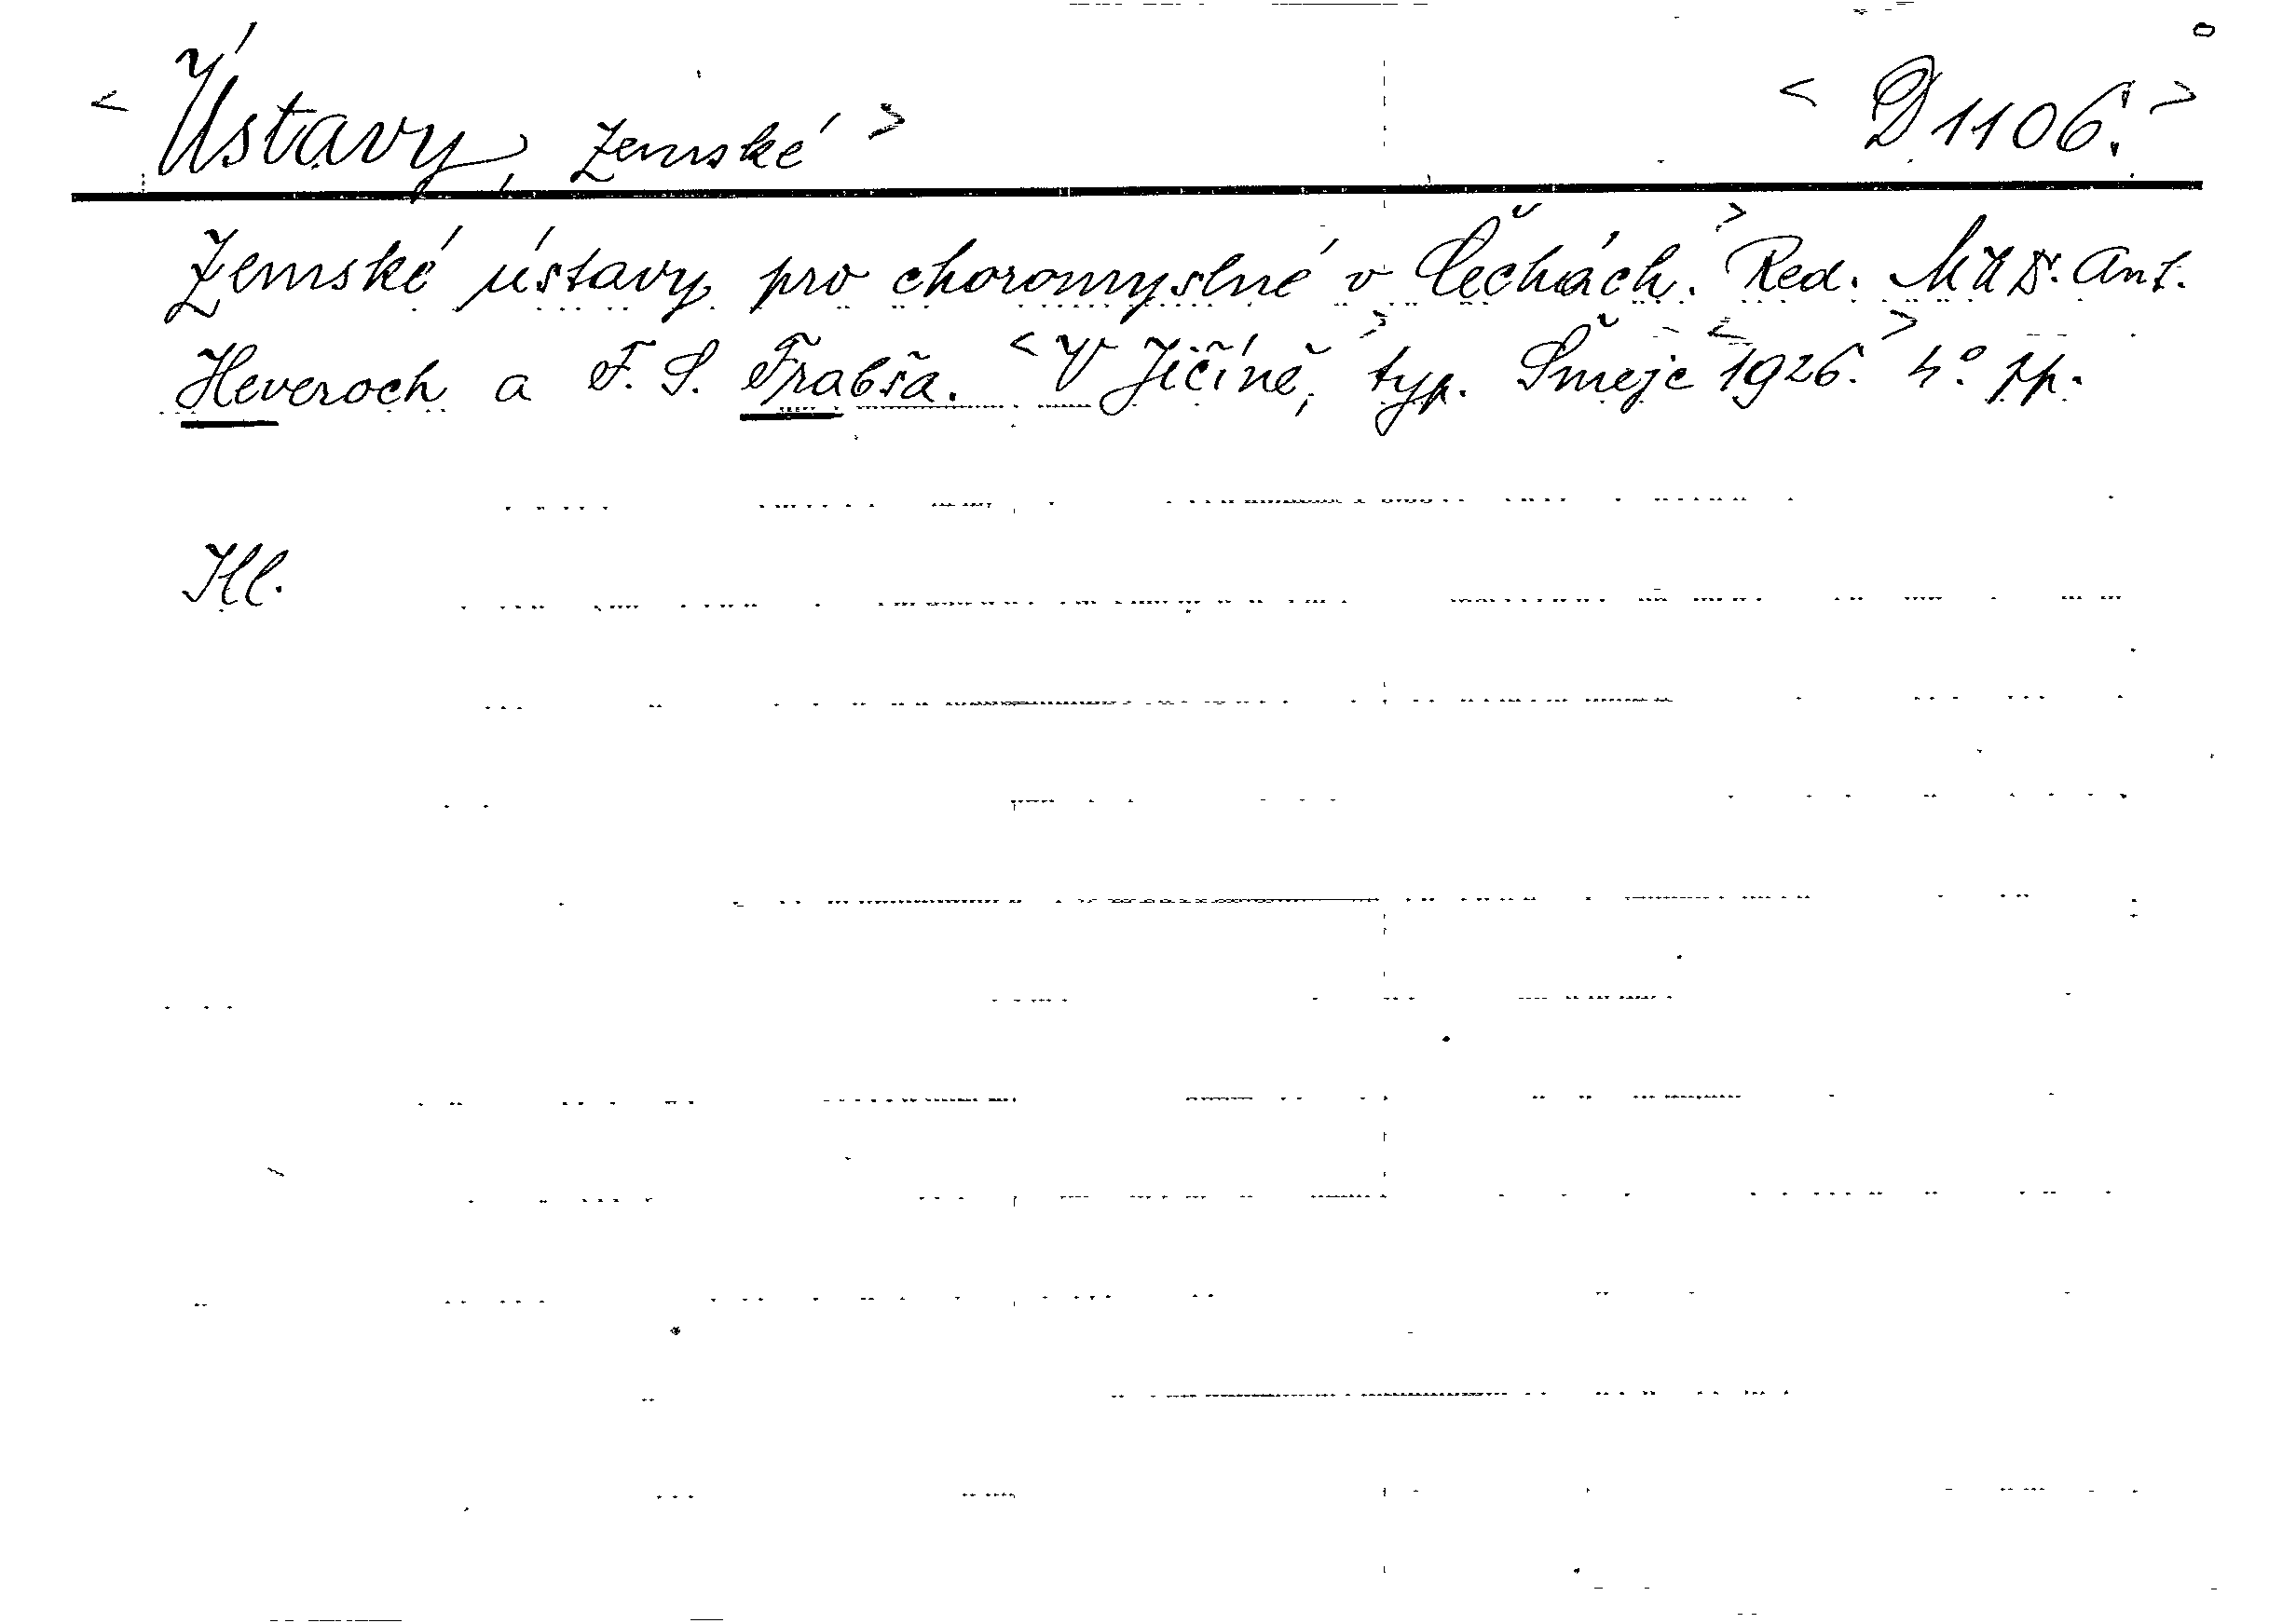 < Ústavy, zemské > < D 1106. >
Zemské ústavy pro choromyslné v Čechách. > Red. MUDr. Ant.
Heveroch a F. S. Frabša. < V Jičíně, > typ. Šmejc < 1926. > 4° pp.
Ill.